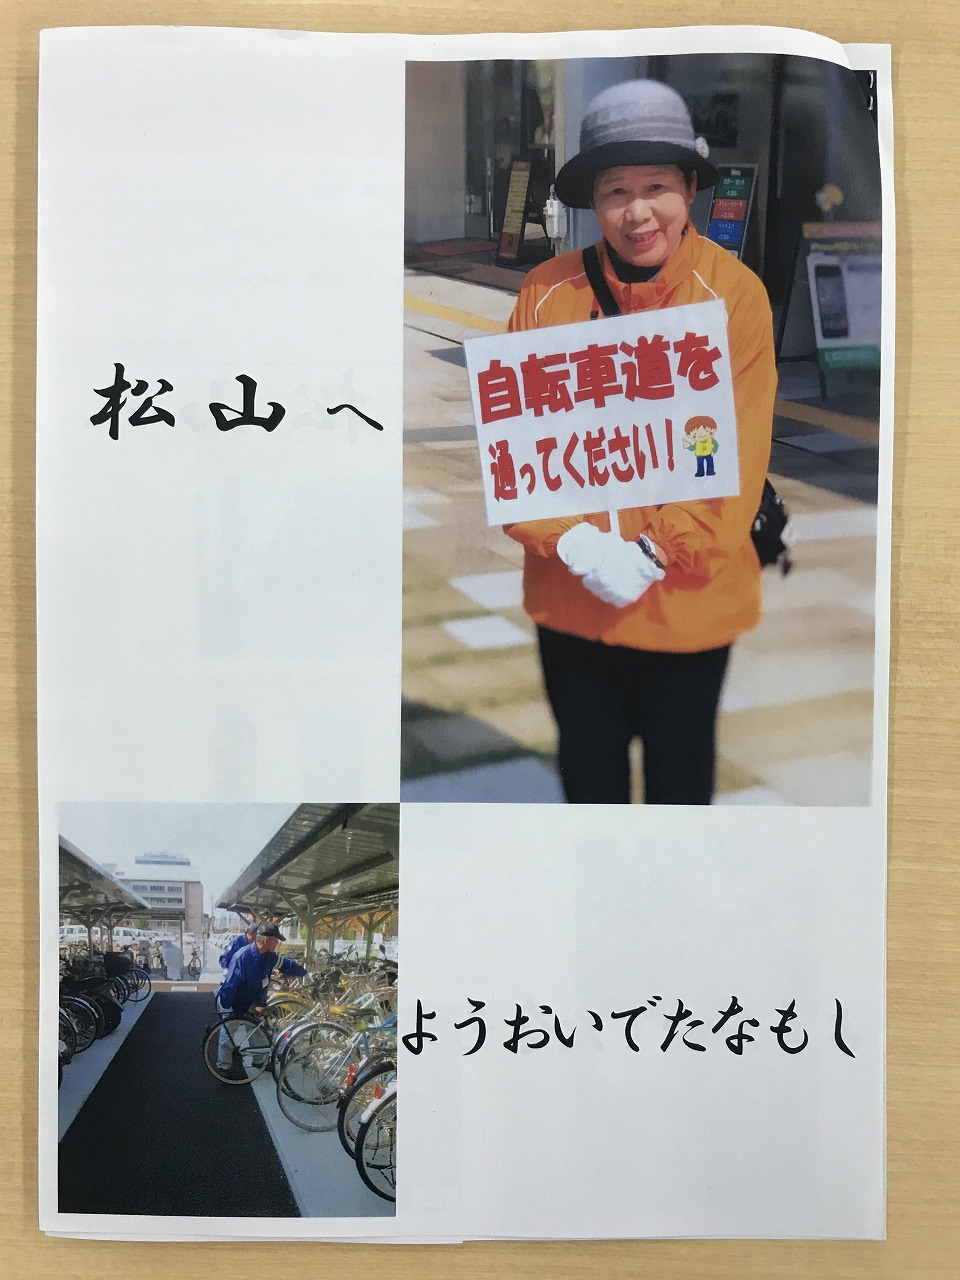 松山へ
自転車道を
通ってください!
ようおいでたなもし